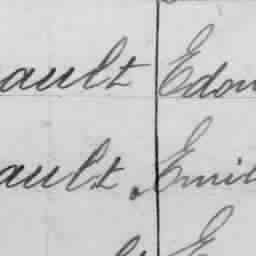 ault Edou
ault. Emil